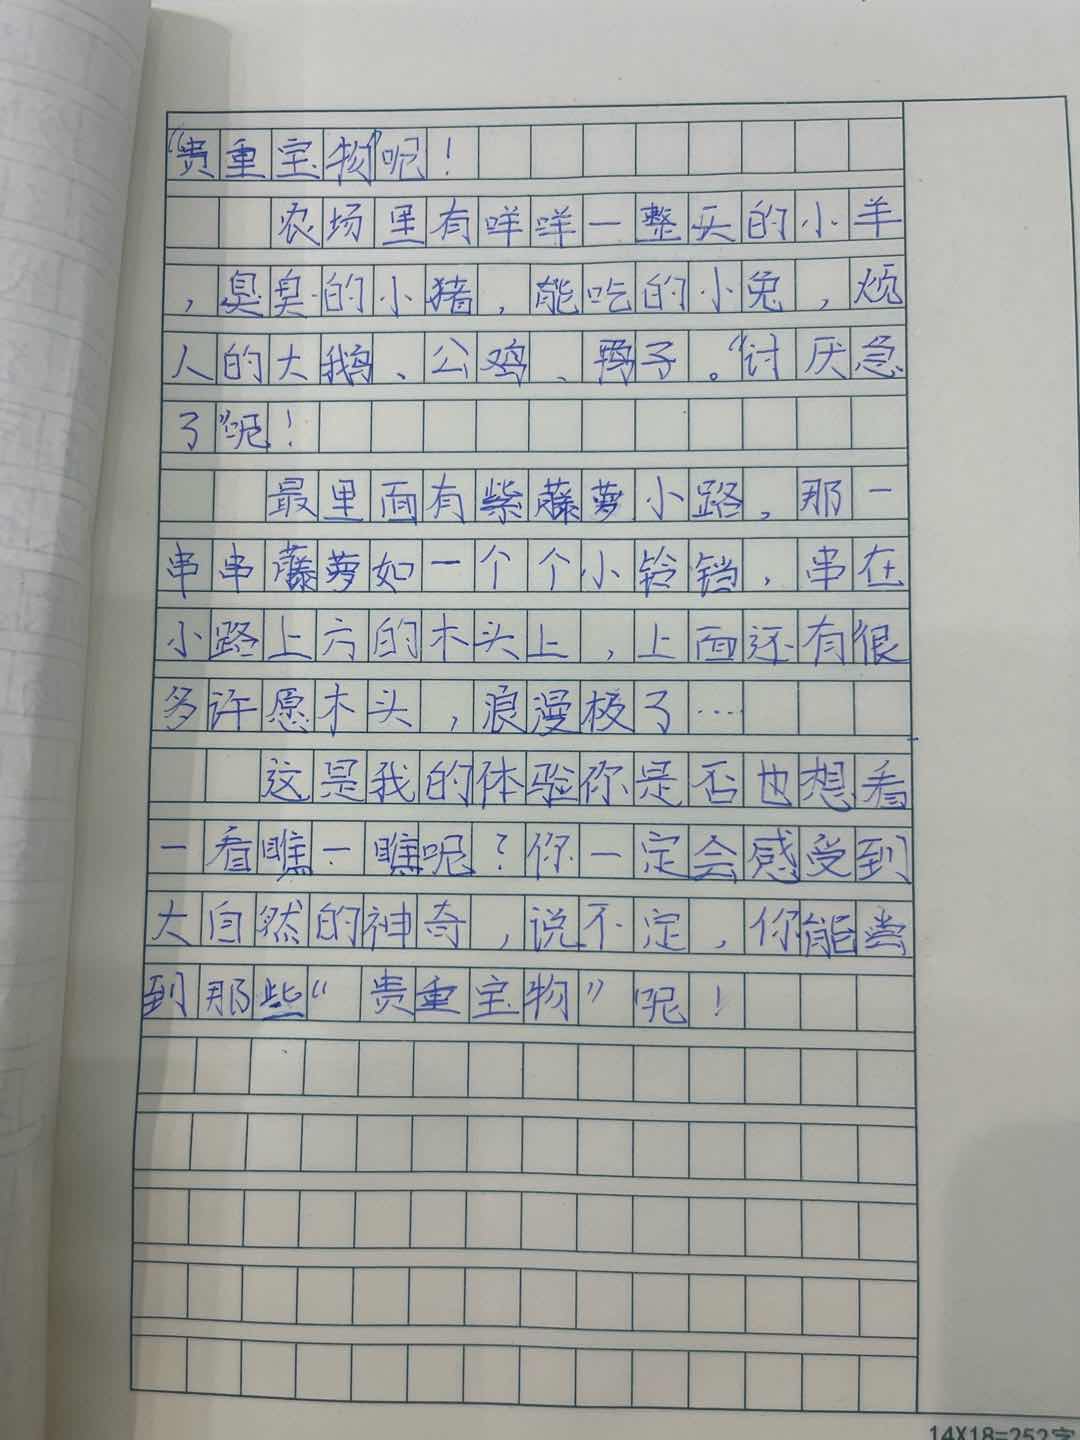 “贵重宝物”呢！
农场里有咩咩一整头的小羊
，臭臭的小猪，能吃的小兔，烦
人的大鹅、公鸡、鸭子。“讨厌急
了”呢！
最里面有紫藤萝小路，那一
串串藤萝如一个个小铃铛，串在
小路上方的木头上，上面还有很
多许愿木头，浪漫极了…
这是我的体验你是否也想看
一看瞧一瞧呢？你一定会感受到
大自然的神奇，说不定，你能尝
到那些“贵重宝物”呢！
14X18=252字